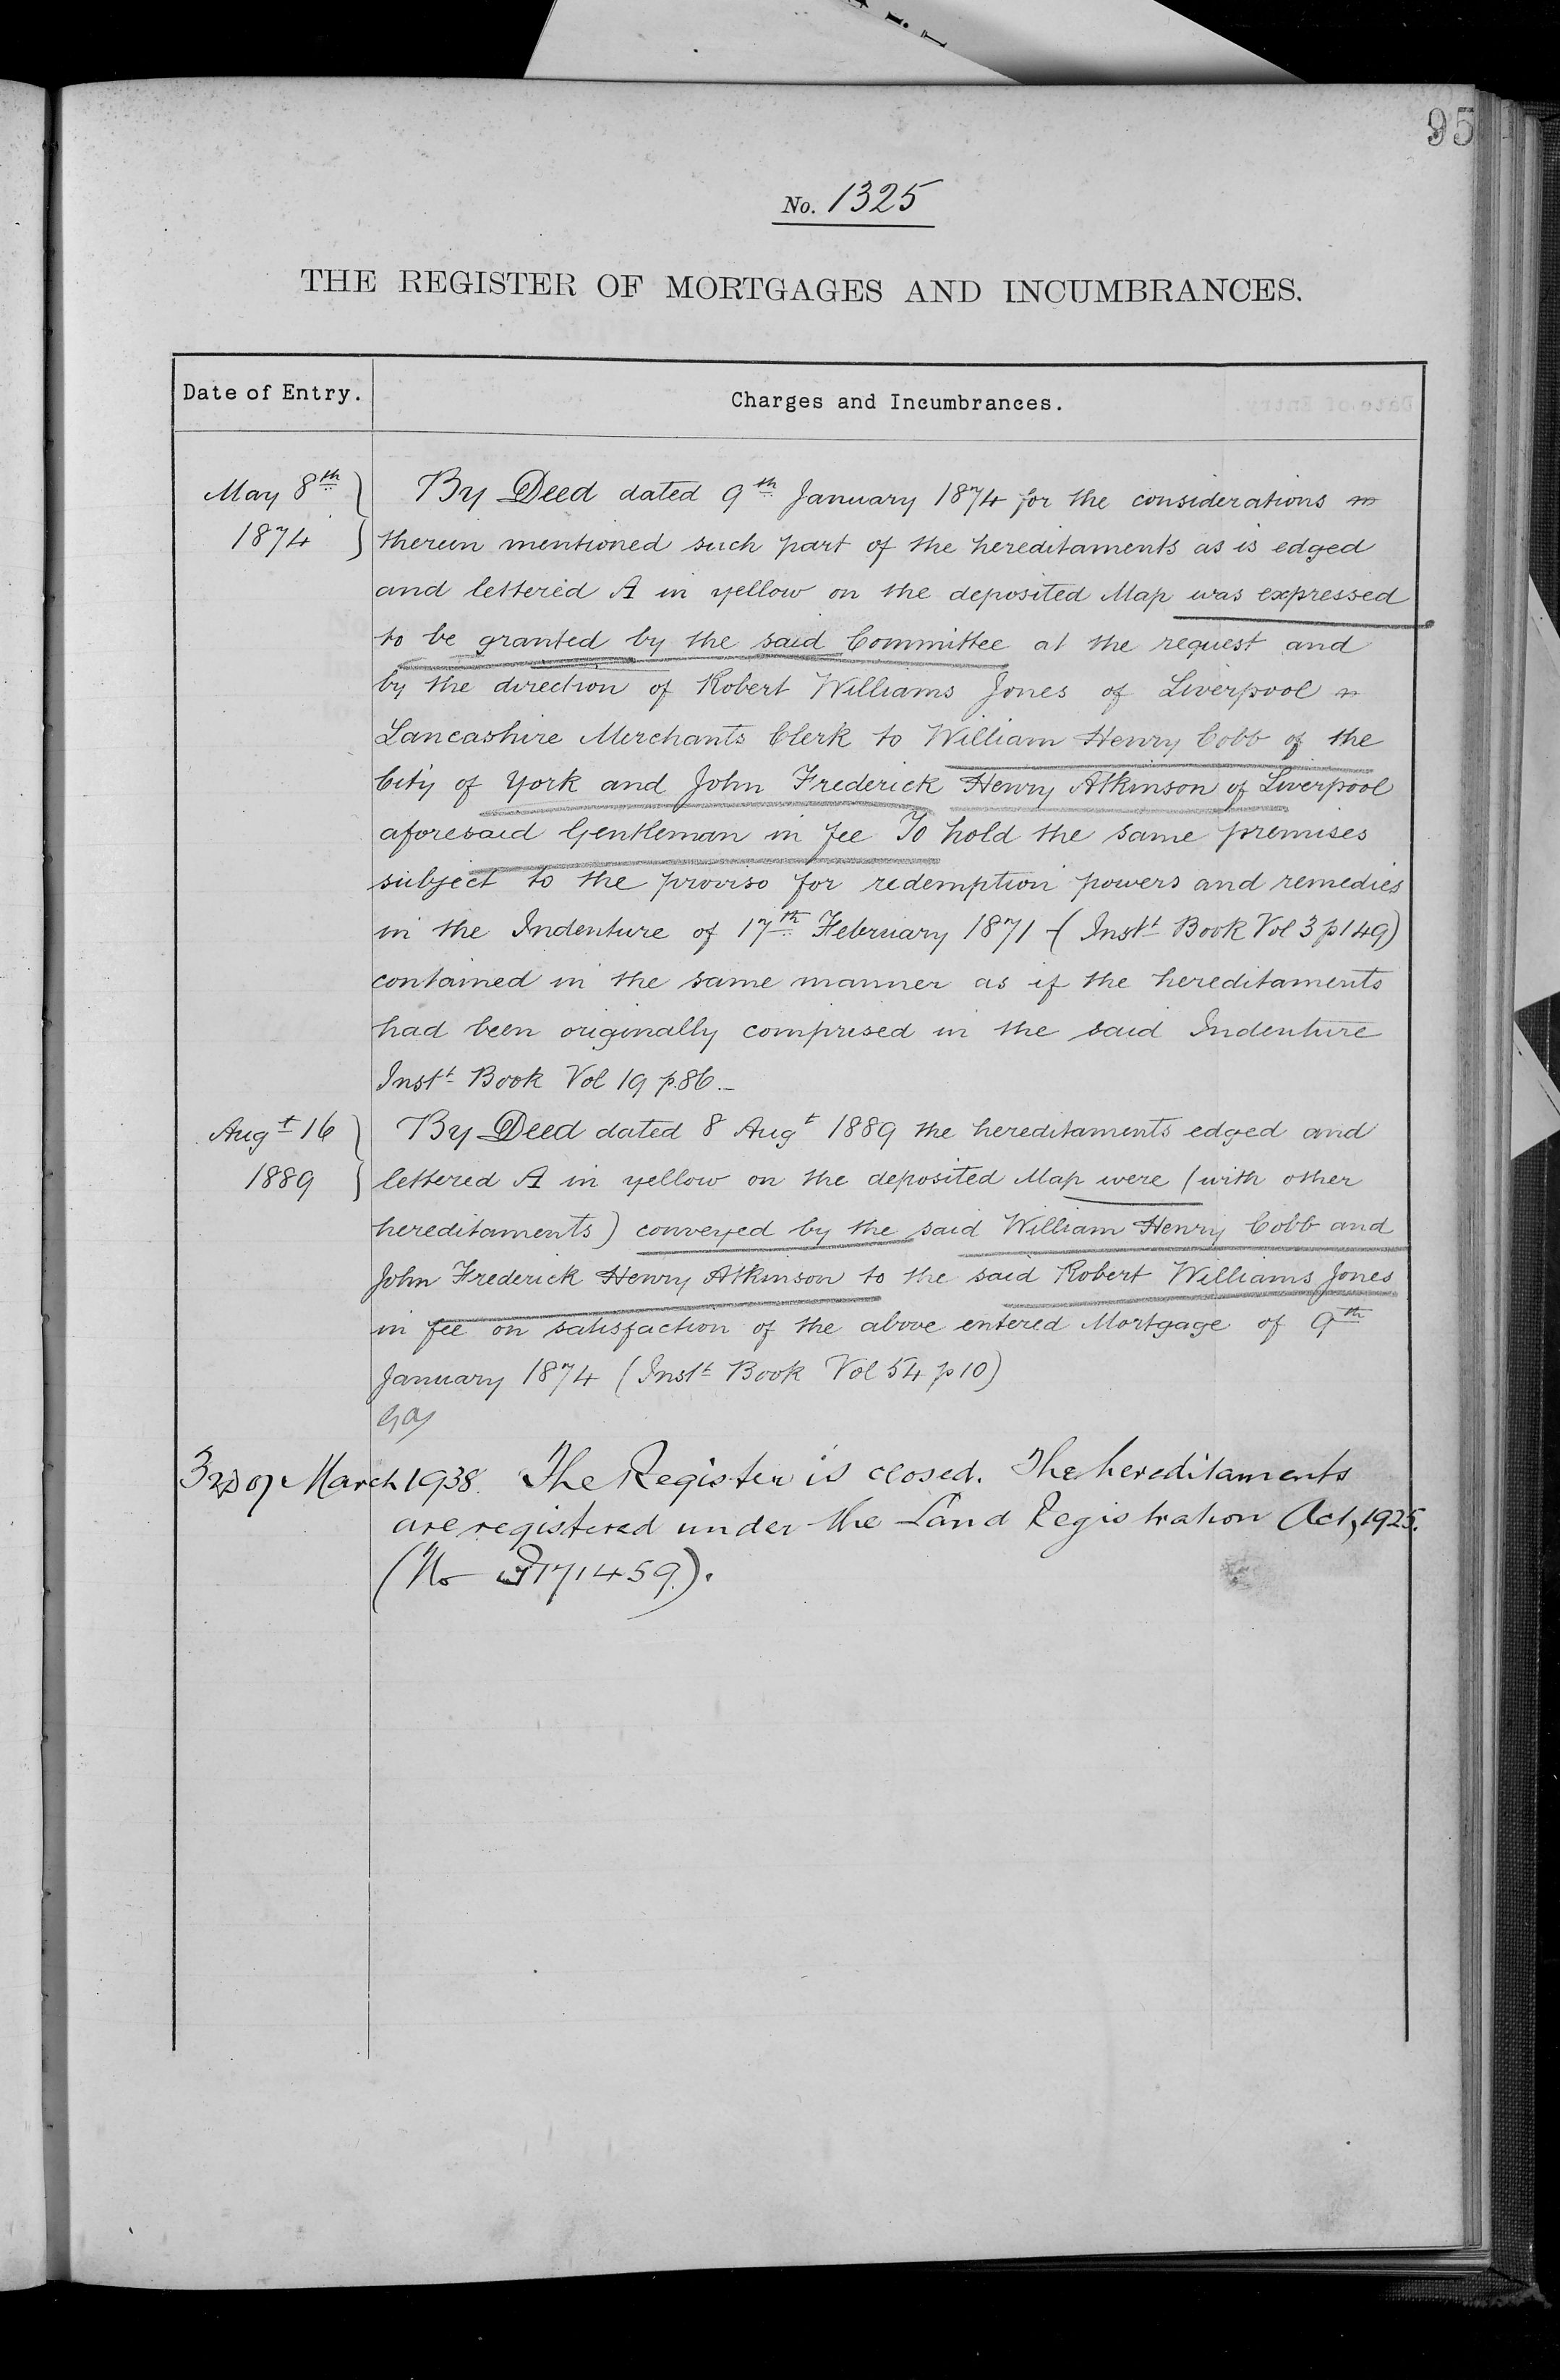 95
No. 1325
THE REGISTER OF MORTGAGES AND INCUMBRANCES.
Date of Entry.
Charges and Incumbrances.
May 8th
1874
By Deed dated 9th January 1874 for the considerations
therein mentioned such part of the hereditaments as is edged
and lettered A in yellow on the deposited Map was expressed
to be granted by the said Committee at the request and
by the direction of Robert Williams Jones of Liverpool
Lancashire Merchants Clerk to William Henry Cobb of the
City of York and John Frederick Henry Atkinson of Liverpool
aforesaid Gentleman in fee To hold the same premises
subject to the proviso for redemption powers and remedies
in the Indenture of 17th February 1871 - (Instt Book Vol 3 p149)
contained in the same manner as if the hereditaments
had been originally comprised in the said Indenture
Instt Book Vol 19 p.86._
Augt 16
1889
By Deed dated 8 Augt 1889 the hereditaments edged and
lettered A in yellow on the deposited Map were (with other
hereditaments) conveyed by the said William Henry Cobb and
John Frederick Henry Atkinson to the said Robert Williams Jones
in fee on satisfaction of the above entered Mortgage of 9th
January 1874 (Instt Book Vol 54 p10)
3rd of March 1938. The Register is closed. The hereditaments
are registered under the Land Registration Act, 1925.
(No 171459).